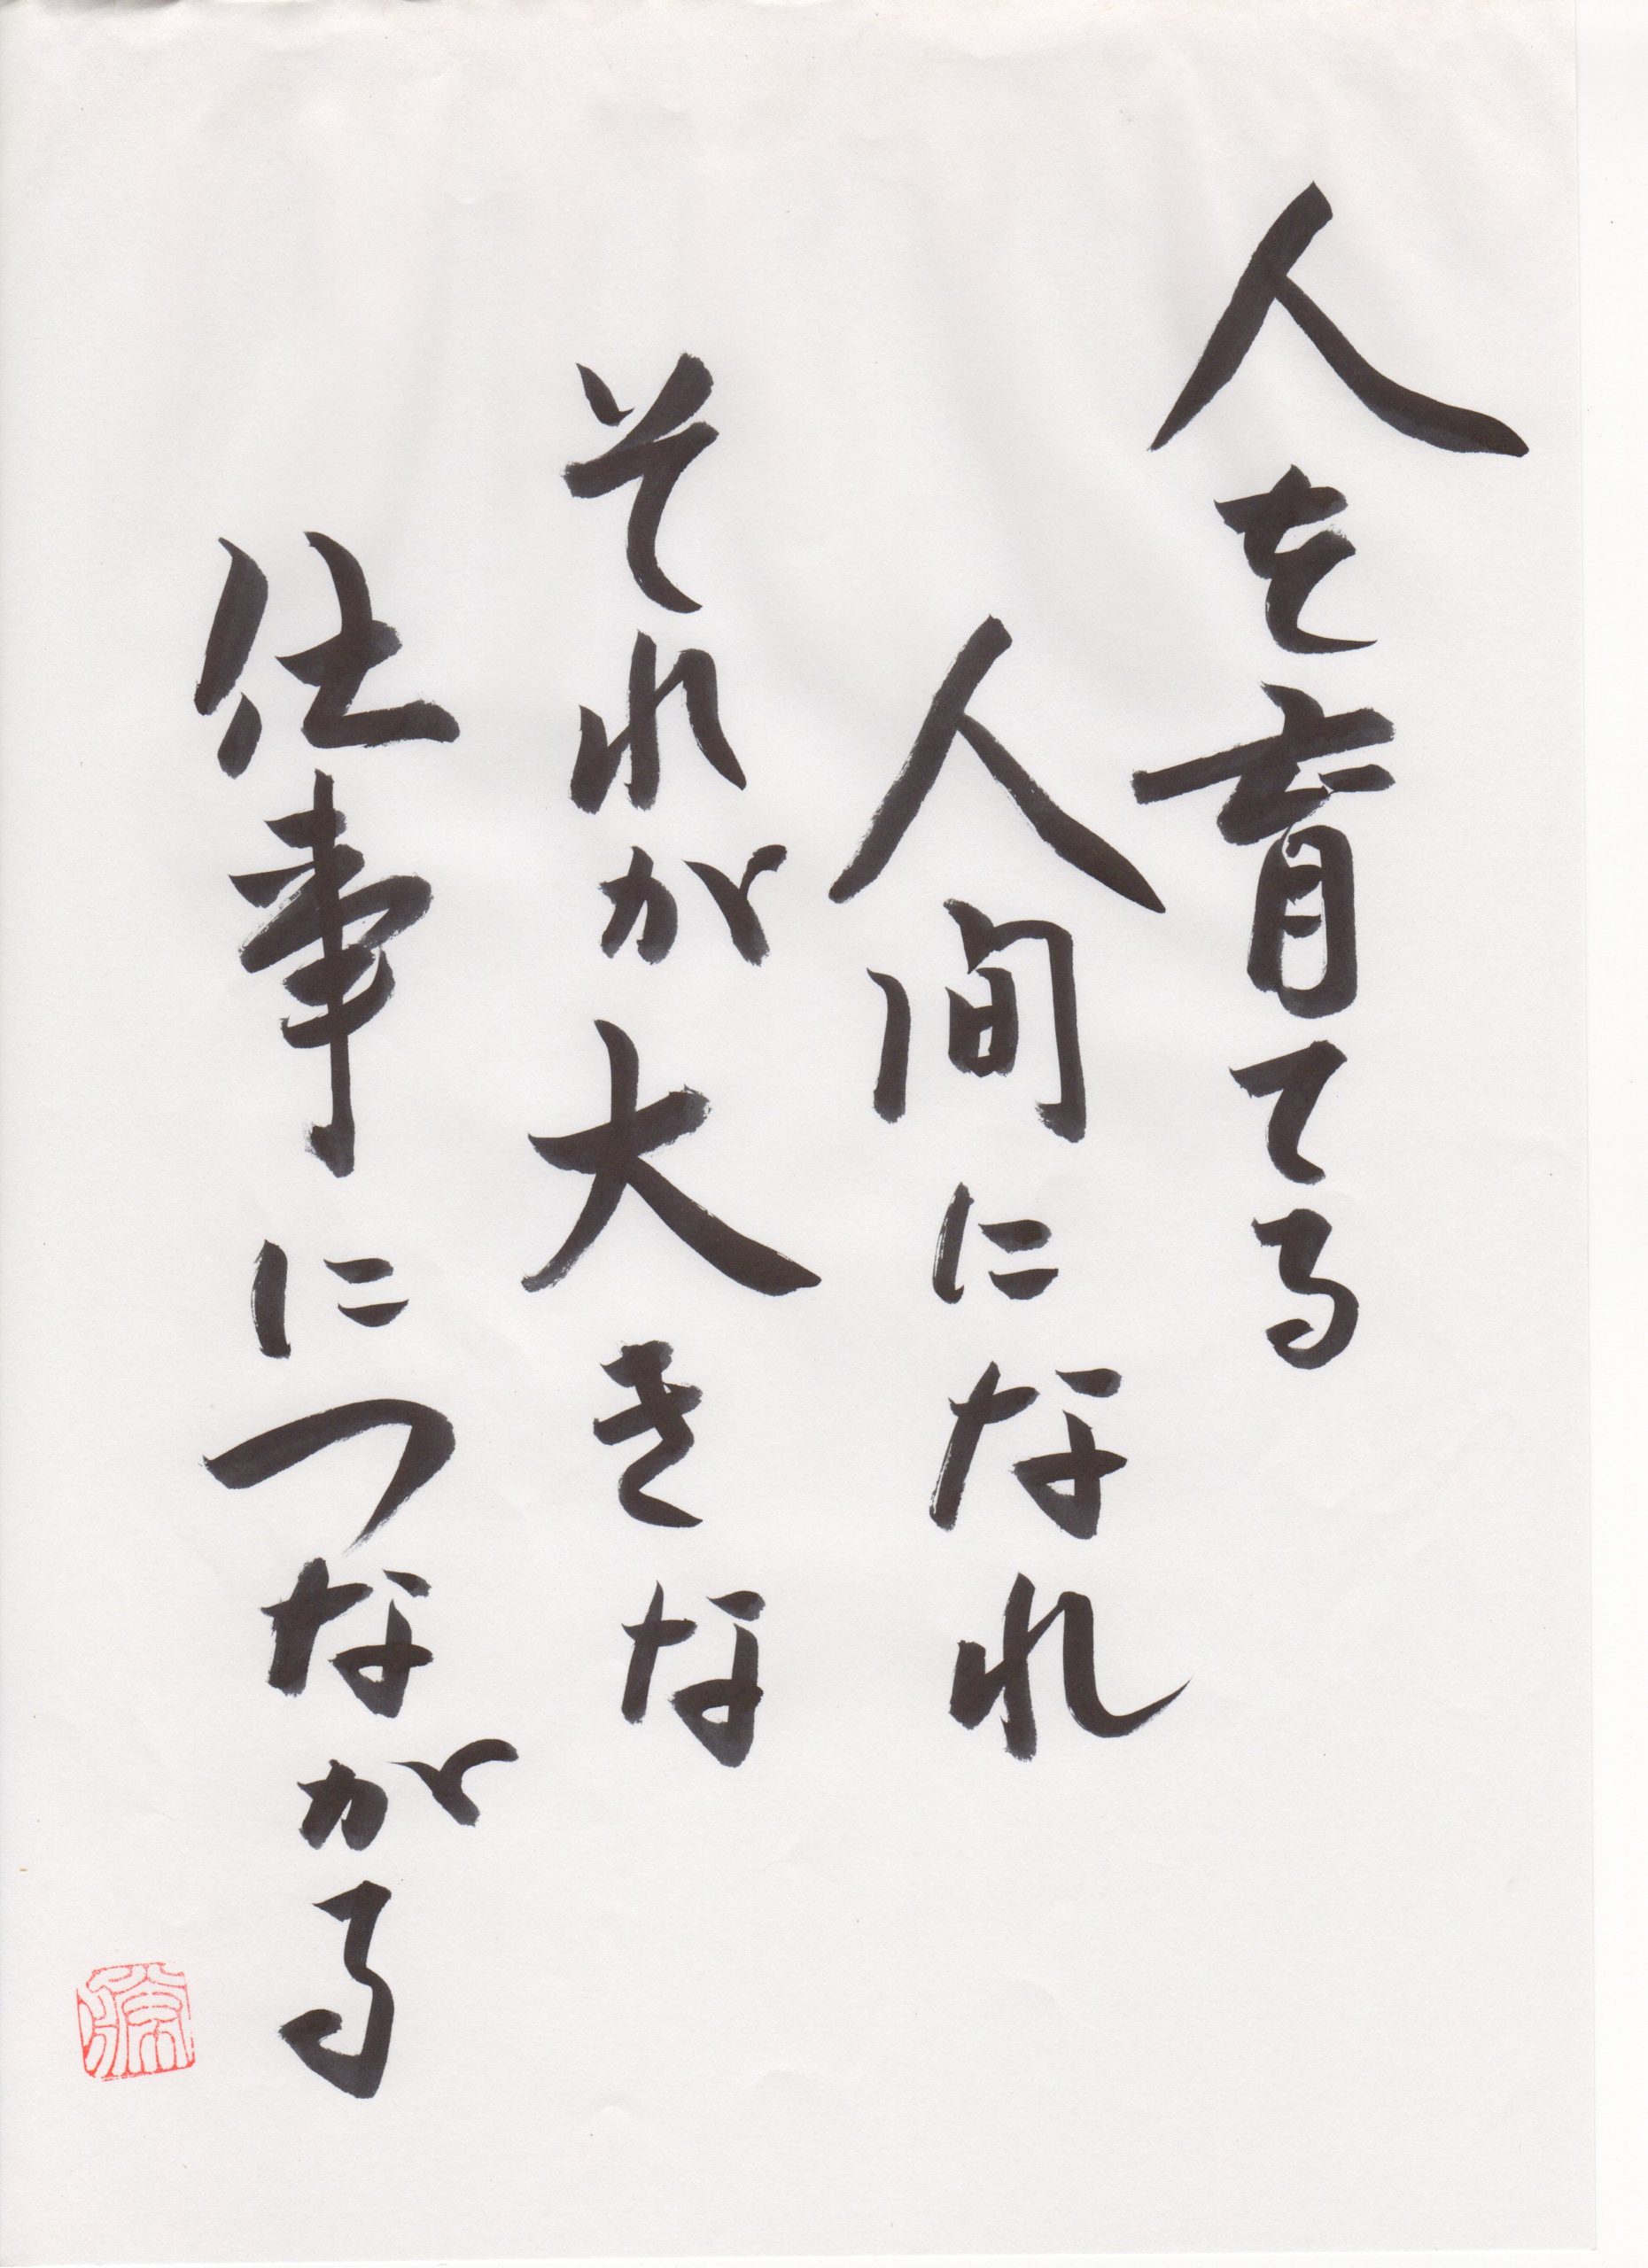 人を育てる
人間になれ
それが大きな
仕事につながる